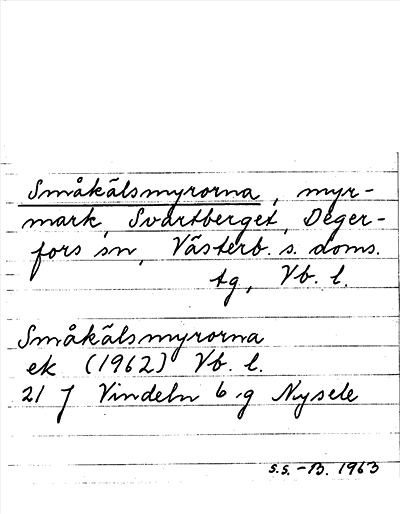 Småkälsmyrorna, myr-
mark, Svartberget, Deger-
fors sn, Västerb. s. doms.
tg, Vb. l.
Småkälsmyrorna
ek (1962) Vb. l.
21 J Vindeln 6 g Nysele
s.s. - B. 1963